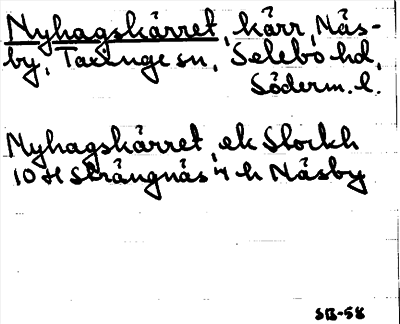 Nyhagskärret, kärr, Näs-
by, Taxinge sn, Selebo hd,
Söderm. l.
Nyhagskärret, ek Stockh
10 H Strängnäs 4 h Näsby
SB-58